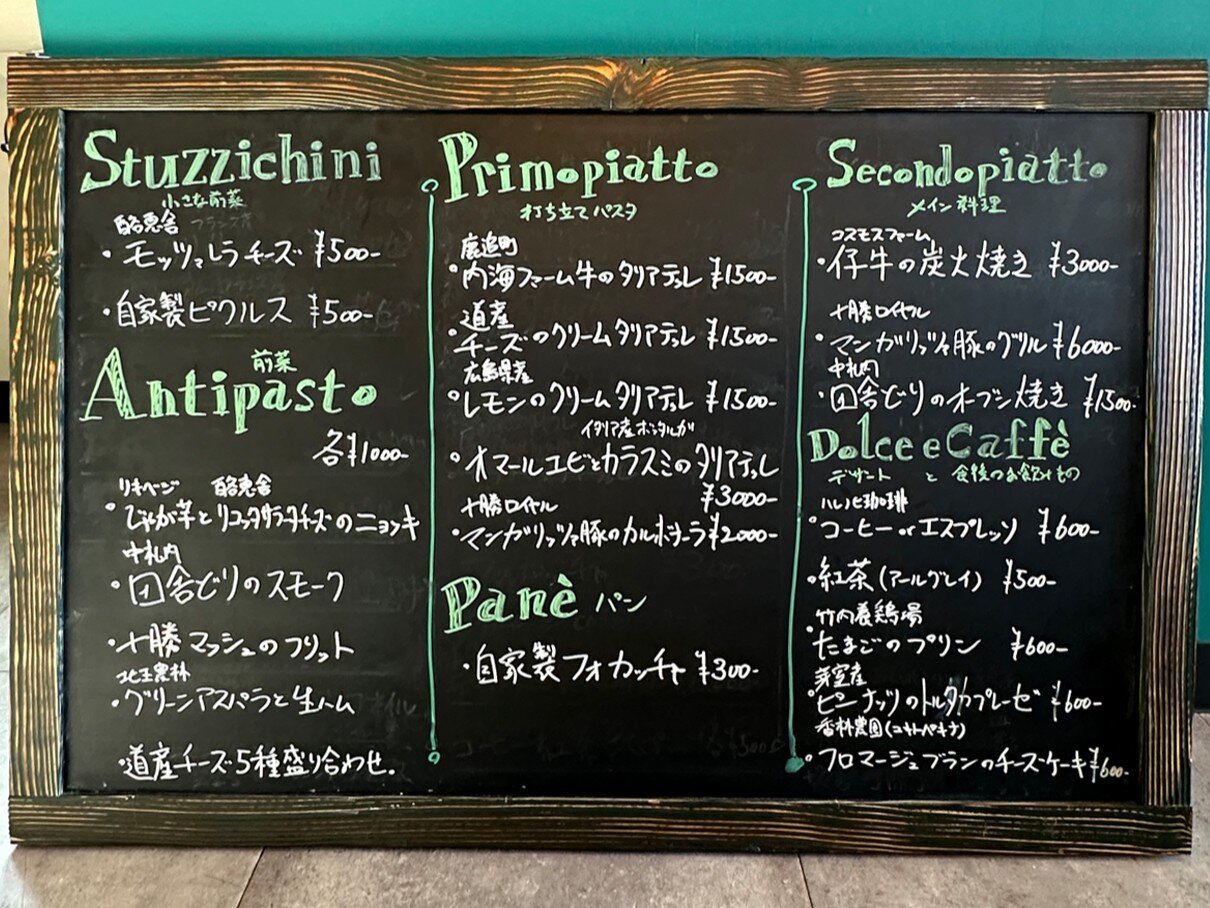 Stuzzichini
小さな前菜
酪恵舎
・モッツァレラチーズ ¥500-
・自家製ピクルス ¥500-
前菜
Antipasto
各¥1000-
リキページ 酪恵舎
・じゃが芋とリコッタサラータチーズのニョッキ
中札内
・田舎どりのスモーク
・十勝マッシュのフリット
北王農林
・グリーンアスパラと生ハム
・道産チーズ5種盛り合わせ。
Primopiatto
打ち立てパスタ
鹿追町
・内海ファーム牛のタリアテッレ ¥1500-
道産
・チーズのクリームタリアテッレ ¥1500-
広島県産
・レモンのクリームタリアテッレ ¥1500-
イタリア産ボッタルガ
・オマールエビとカラスミのタリアテッレ
¥3000-
十勝ロイヤル
・マンガリッツァ豚のカルボナーラ ¥2000-
Panè パン
・自家製フォカッチャ ¥300-
Secondopiatto
メイン料理
コスモスファーム
・仔牛の炭火焼き ¥3000-
十勝ロイヤル
・マンガリッツァ豚のグリル ¥6000-
中札内
・田舎どりのオーブン焼き ¥1500-
Dolce e Caffè
デザート と 食後のお飲みもの
ハレノヒ珈琲
・コーヒー or エスプレッソ ¥600-
・紅茶(アールグレイ) ¥500-
竹内養鶏場
・たまごのプリン ¥600-
芽室産
・ピーナッツのトルタカプレーゼ ¥600-
香林農園(コサトバキナ)
・フロマージュブランのチーズケーキ ¥600-